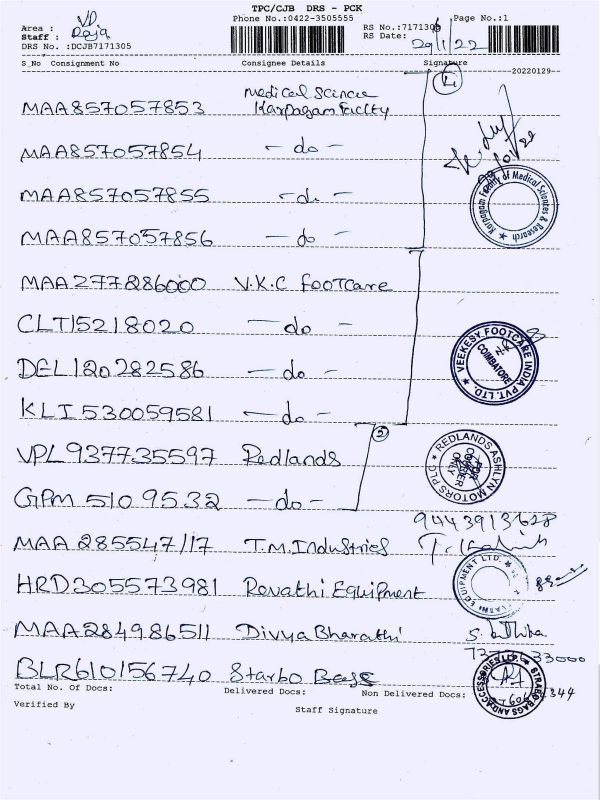 TPC/CJB DRS - PCK
Phone No.:0422-3505555
Page No.:1
Area : VP
Staff : Raja
RS No.:7171305
RS Date: 29/1/22
DRS No. :DCJB7171305
S_No Consignment No Consignee Details Signature
20220129
MAA857057853 Medical Science Karpagam Faclty
MAA857057854 - do -
MAA857057855 - do -
MAA857057856 - do -
Karpagam Faculty of Medical Sciences & Research
MAA277286000 V.K.C FOOTCare
CLT15218020 - do -
DEL120282586 - do -
VEEKESY FOOTCARE INDIA PVT. LTD. COIMBATORE
KLI530059581 - do -
VPL937735597 Redlands
REDLANDS ASHLYN MOTORS PLC FOR COURIER ONLY
GPM 5109532 - do -
9443913628
MAA 285547117 T.M.Industries
HRD305573981 Revathi Equipment
EQUIPMENT LTD.
MAA284986511 Divya Bharathi
BLR610156740 Starbo Bags
33000
BAGS AND ACCESSORIES
Total No. Of Docs: Delivered Docs: Non Delivered Docs:
Verified By
Staff Signature